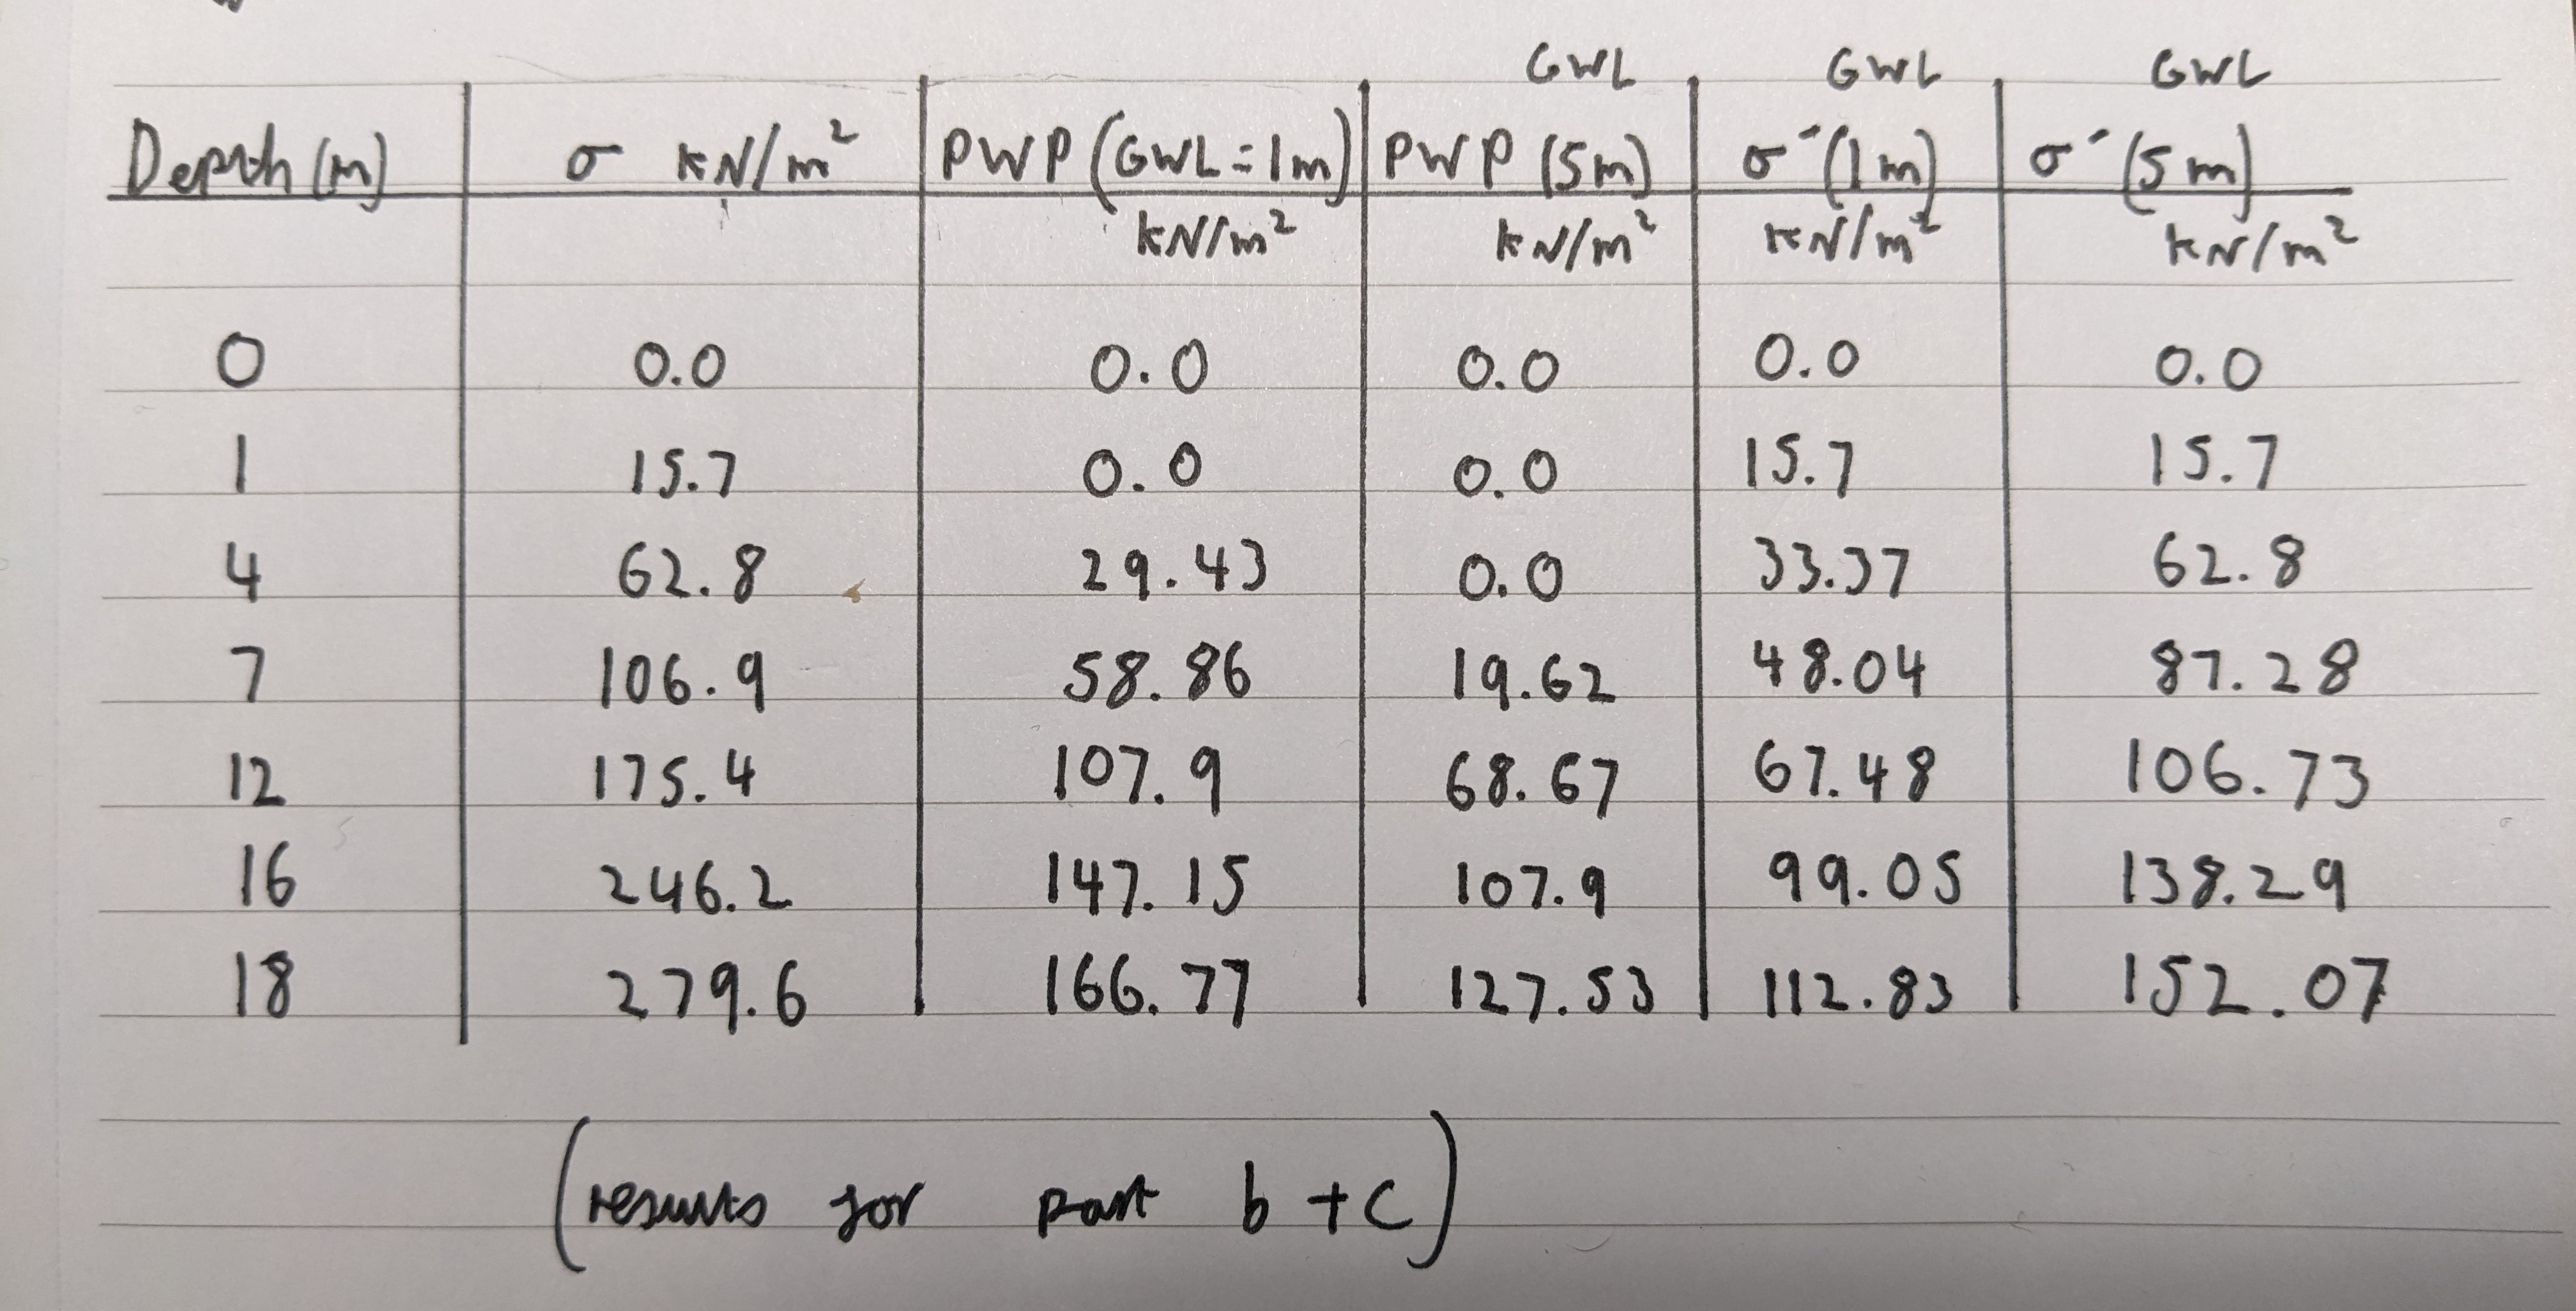 GWL GWL GWL
Depth (m) σ kN/m² PWP (GWL = 1m) PWP (5m) σ' (1m) σ' (5m)
kN/m² kN/m² kN/m² kN/m²
0 0.0 0.0 0.0 0.0 0.0
1 15.7 0.0 0.0 15.7 15.7
4 62.8 29.43 0.0 33.37 62.8
7 106.9 58.86 19.62 48.04 87.28
12 175.4 107.9 68.67 67.48 106.73
16 246.2 147.15 107.9 99.05 138.29
18 279.6 166.77 127.53 112.83 152.07
(results for part b + c)